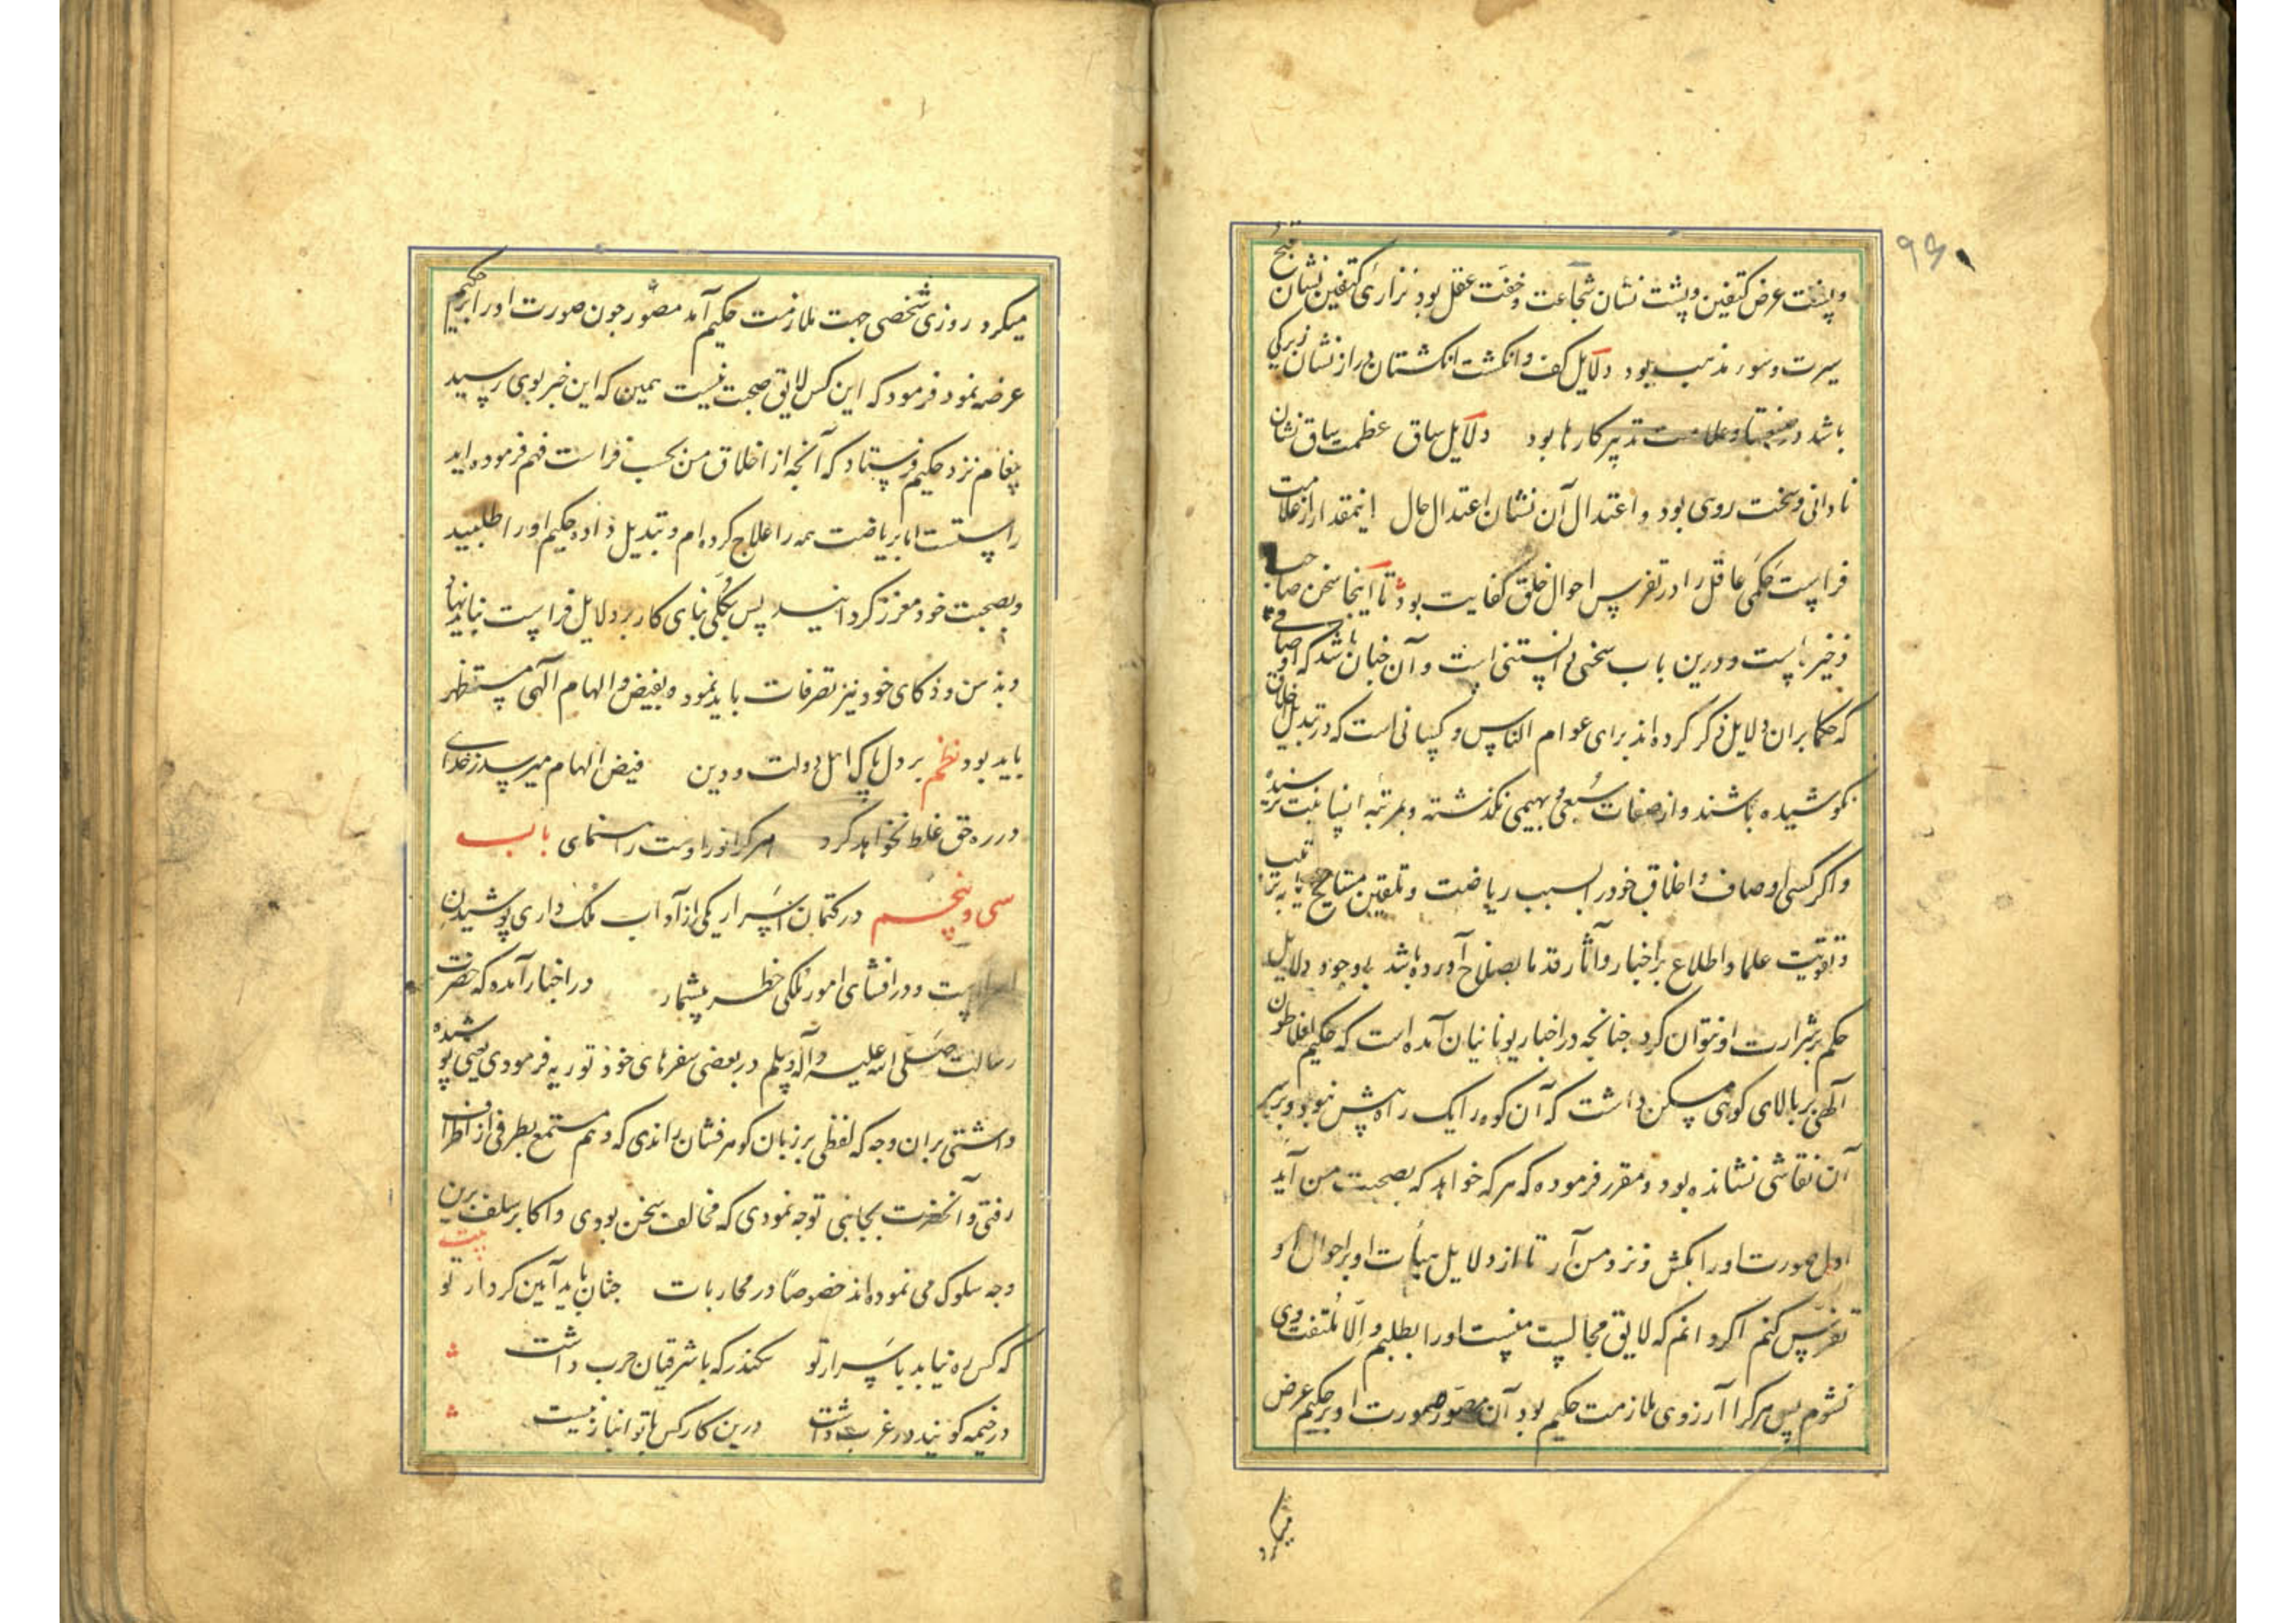 ۹۶
و پشت عرض کتفین و پشت نشان شجاعت و خفت عقل بود نزاری کتفین نشان قبح
سیرت و سوء مذهب بود دلایل کف و انکشت انکشتان دراز نشان زیرکی
باشد در صنعتها و علامت تدبیر کارها بود دلایل ساق عظمت ساق نشان
نادانی و سخت روی بود و اعتدال آن نشان اعتدال حال اینمقدار از علامت
فراست حکمی عاقل را در تفرس احوال خلق کفایت بود تا اینجا سخن صاحب
ذخیره است و درین باب سخنی دانستنی است و آن چنان باشد که اوصافی
که حکما بران دلایل ذکر کرده اند برای عوام الناس و کسانی است که در تبدیل اخلاق
نکوشیده باشند و از صفات سبعی و بهیمی نکذشته و بمرتبه انسانیت نرسیده
و اکر کسی اوصاف و اخلاق خود را بسبب ریاضت و تلقین مشایخ یا بتربیت
و تقویت علما و اطلاع بر اخبار و آثار قدما بصلاح آورده باشد با وجود دلایل
حکم بر شرارت او نتوان کرد چنانچه در اخبار یونانیان آمده است که حکیم افلاطون
آلهی بر بالای کوهی مسکن داشت که آن کوه را یک راه بیش نبود و بر سر
آن نقاشی نشانده بود و مقرر فرموده که هر که خواهد که بصحبت من آید
اول صورت او را بکش و نزد من آر تا از دلایل هیأت او بر احوال او
تفرس کنم اکر دانم که لایق مجالست منست او را بطلبم و الا ملتفت وی
نشوم پس هر کرا آرزوی ملازمت حکیم بود آن مصور صورت او بر حکیم عرض
میکرد
میکرد روزی شخصی جهت ملازمت حکیم آمد مصور چون صورت او را بر حکیم
عرضه نمود فرمود که این کس لایق صحبت نیست همین که این خبر بوی رسید
پیغام نزد حکیم فرستاد که آنچه از اخلاق من بحسب فراست فهم فرموده اید
راستست اما بریاضت همه را علاج کرده ام و تبدیل داده حکیم او را طلبید
و بصحبت خود معزز کردانید پس بکلی بنای کار بر دلایل فراست نباید نهاد
و بذهن و ذکای خود نیز تصرفات باید نمود و بفیض و الهام آلهی مستظهر
باید بود نظم بر دل پاک اهل دولت و دین فیض الهام میرسد ز خدای
در ره حق غلط نخواهد کرد هر کرا نور اوست راهنمای باب
سی و پنجم در کتمان اسرار یکی از آداب ملک داری پوشیدن
اسرار است و در افشای امور ملکی خطر بیشمار در اخبار آمده که حضرت
رسالت صلی الله علیه و آله و سلم در بعضی سفرهای خود توریه فرمودی یعنی پوشیده
داشتی بران وجه که لفظی بر زبان کوهرفشان راندی که وهم مستمع بطرفی از اطراف
رفتی و آنحضرت بجانبی توجه نمودی که مخالف سخن بودی و اکابر سلف برین
وجه سلوک می نموده اند خصوصا در محاربات بیت چنان باید آیین کردار تو
که کس ره نیابد باسرار تو سکندر که با شرقیان حرب داشت
در خیمه کویند در غرب داشت درین کار کس با تو انباز نیست